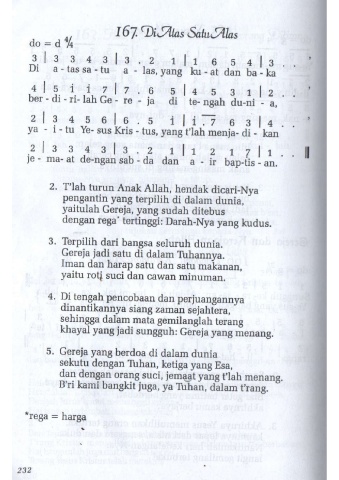 167. Di Atas Satu Alas
do = d 4/4
3 | 3 3 4 3 | 3 . 2 1 | 1 6 5 4 | 3 . . '
Di a - tas sa - tu a - las, yang ku - at dan ba - ka
4 | 5 i i 7 | 7 . 6 5 | 4 5 3 1 | 2 . . '
ber - di - ri - lah Ge - re - ja di te - ngah du - ni - a,
2 | 3 4 5 6 | 6 . 5 i | i 7 6 3 | 4 . . '
ya - i - tu Ye - sus Kris - tus, yang t'lah menja - di - kan
2 | 3 3 4 3 | 3 . 2 1 | 1 2 1 7 | 1 . . ||
je - ma - at de - ngan sab - da dan a - ir bap - tis - an.
2. T'lah turun Anak Allah, hendak dicari-Nya
pengantin yang terpilih di dalam dunia,
yaitulah Gereja, yang sudah ditebus
dengan rega* tertinggi: Darah-Nya yang kudus.
3. Terpilih dari bangsa seluruh dunia.
Gereja jadi satu di dalam Tuhannya.
Iman dan harap satu dan satu makanan,
yaitu roti suci dan cawan minuman.
4. Di tengah pencobaan dan perjuangannya
dinantikannya siang zaman sejahtera,
sehingga dalam mata gemilanglah terang
khayal yang jadi sungguh: Gereja yang menang.
5. Gereja yang berdoa di dalam dunia
sekutu dengan Tuhan, ketiga yang Esa,
dan dengan orang suci, jemaat yang t'lah menang.
B'ri kami bangkit juga, ya Tuhan, dalam t'rang.
*rega = harga
232